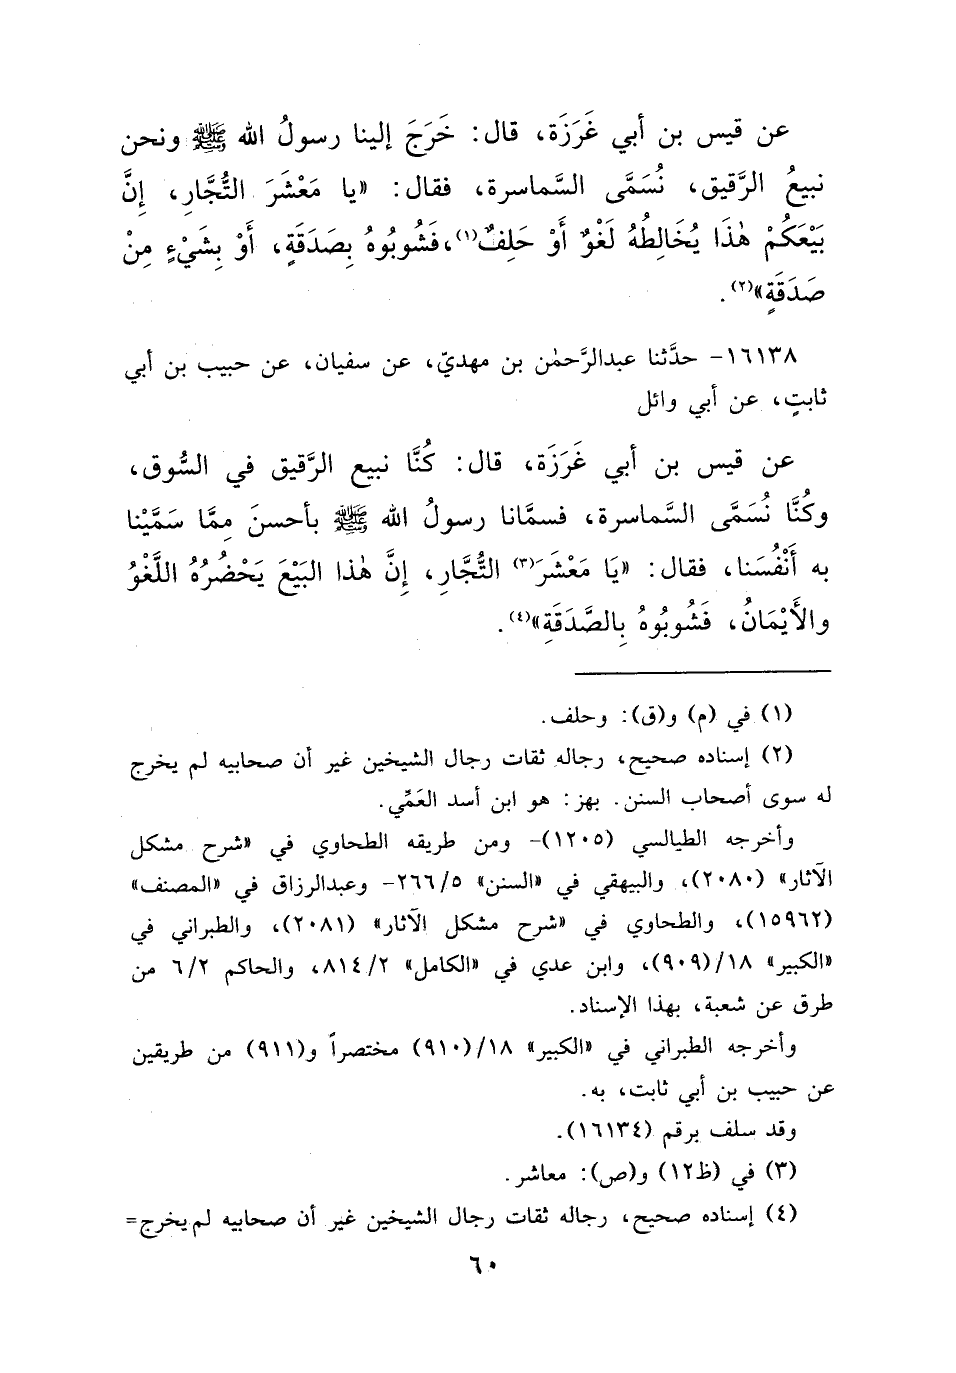 عن قيس بن أبي غَرَزَة، قال: خَرَجَ إلينا رسولُ الله ﷺ ونحن
نبيعُ الرَّقيق، نُسَمَّى السَّماسرة، فقال: «يا مَعْشَرَ التُّجَّارِ، إِنَّ
بَيْعَكُمْ هٰذَا يُخَالِطُهُ لَغْوٌ أَوْ حَلِفٌ(١)، فَشُوبُوهُ بِصَدَقَةٍ، أَوْ بِشَيْءٍ مِنْ
صَدَقَةٍ»(٢).
١٦١٣٨- حدَّثنا عبدالرَّحمٰن بن مهديّ، عن سفيان، عن حبيب بن أبي
ثابتٍ، عن أبي وائل
عن قيس بن أبي غَرَزَة، قال: كُنَّا نبيع الرَّقيق في السُّوق،
وكُنَّا نُسَمَّى السَّماسرة، فسمَّانا رسولُ الله ﷺ بأحسنَ مِمَّا سَمَّيْنا
به أَنْفُسَنا، فقال: «يَا مَعْشَرَ(٣) التُّجَّارِ، إِنَّ هٰذا البَيْعَ يَحْضُرُهُ اللَّغْوُ
والأَيْمَانُ، فَشُوبُوهُ بِالصَّدَقَةِ»(٤).
(١) في (م) و(ق): وحلف.
(٢) إسناده صحيح، رجاله ثقات رجال الشيخين غير أن صحابيه لم يخرج
له سوى أصحاب السنن. بهز: هو ابن أسد العَمِّي.
وأخرجه الطيالسي (١٢٠٥)- ومن طريقه الطحاوي في «شرح مشكل
الآثار» (٢٠٨٠)، والبيهقي في «السنن» ٢٦٦/٥- وعبدالرزاق في «المصنف»
(١٥٩٦٢)، والطحاوي في «شرح مشكل الآثار» (٢٠٨١)، والطبراني في
«الكبير» ١٨/(٩٠٩)، وابن عدي في «الكامل» ٨١٤/٢، والحاكم ٦/٢ من
طرق عن شعبة، بهذا الإسناد.
وأخرجه الطبراني في «الكبير» ١٨/(٩١٠) مختصراً و(٩١١) من طريقين
عن حبيب بن أبي ثابت، به.
وقد سلف برقم (١٦١٣٤).
(٣) في (ظ١٢) و(ص): معاشر.
(٤) إسناده صحيح، رجاله ثقات رجال الشيخين غير أن صحابيه لم يخرج=
٦٠